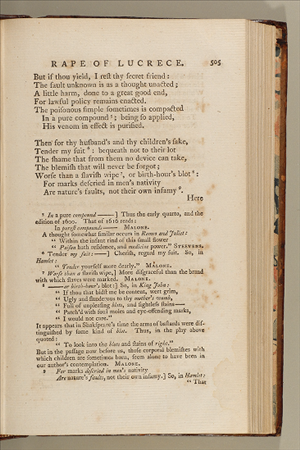 RAPE OF LUCRECE. 505
But if thou yield, I rest thy secret friend:
The fault unknown is as a thought unacted;
A little harm, done to a great good end,
For lawful policy remains enacted.
The poisonous simple sometimes is compacted
In a pure compound; being so applied,
His venom in effect is purified.
Then for thy husband's and thy children's sake,
Tender my suit: bequeath not to their lot
The shame that from them no device can take,
The blemish that will never be forgot;
Worse than a slavish wipe, or birth-hour's blot:
For marks descried in men's nativity
Are nature's faults, not their own infamy.
Here
In a pure compound ——] Thus the early quarto, and the
edition of 1600. That of 1616 reads:
In purest compounds —. MALONE.
A thought somewhat similar occurs in Romeo and Juliet:
" Within the infant rind of this small flower
" Poison hath residence, and medicine power." STEEVENS.
Tender my suit:] Cherish, regard my suit. So, in
Hamlet:
" Tender yourself more dearly." MALONE.
Worse than a slavish wipe,] More disgraceful than the brand
with which slaves were marked. MALONE.
— or birth-hour's blot:] So, in King John:
" If thou that bidst me be content, wert grim,
" Ugly and sland'rous to thy mother's womb,
" Full of unpleasing blots, and sightless stains—
" Patch'd with foul moles and eye-offending marks,
" I would not care."
It appears that in Shakspeare's time the arms of bastards were dis-
tinguished by some kind of blot. Thus, in the play above
quoted:
" To look into the blots and stains of right."
But in the passage now before us, those corporal blemishes with
which children are sometimes born, seem alone to have been in
our author's contemplation. MALONE.
For marks descried in men's nativity
Are nature's faults, not their own infamy.] So, in Hamlet:
" That